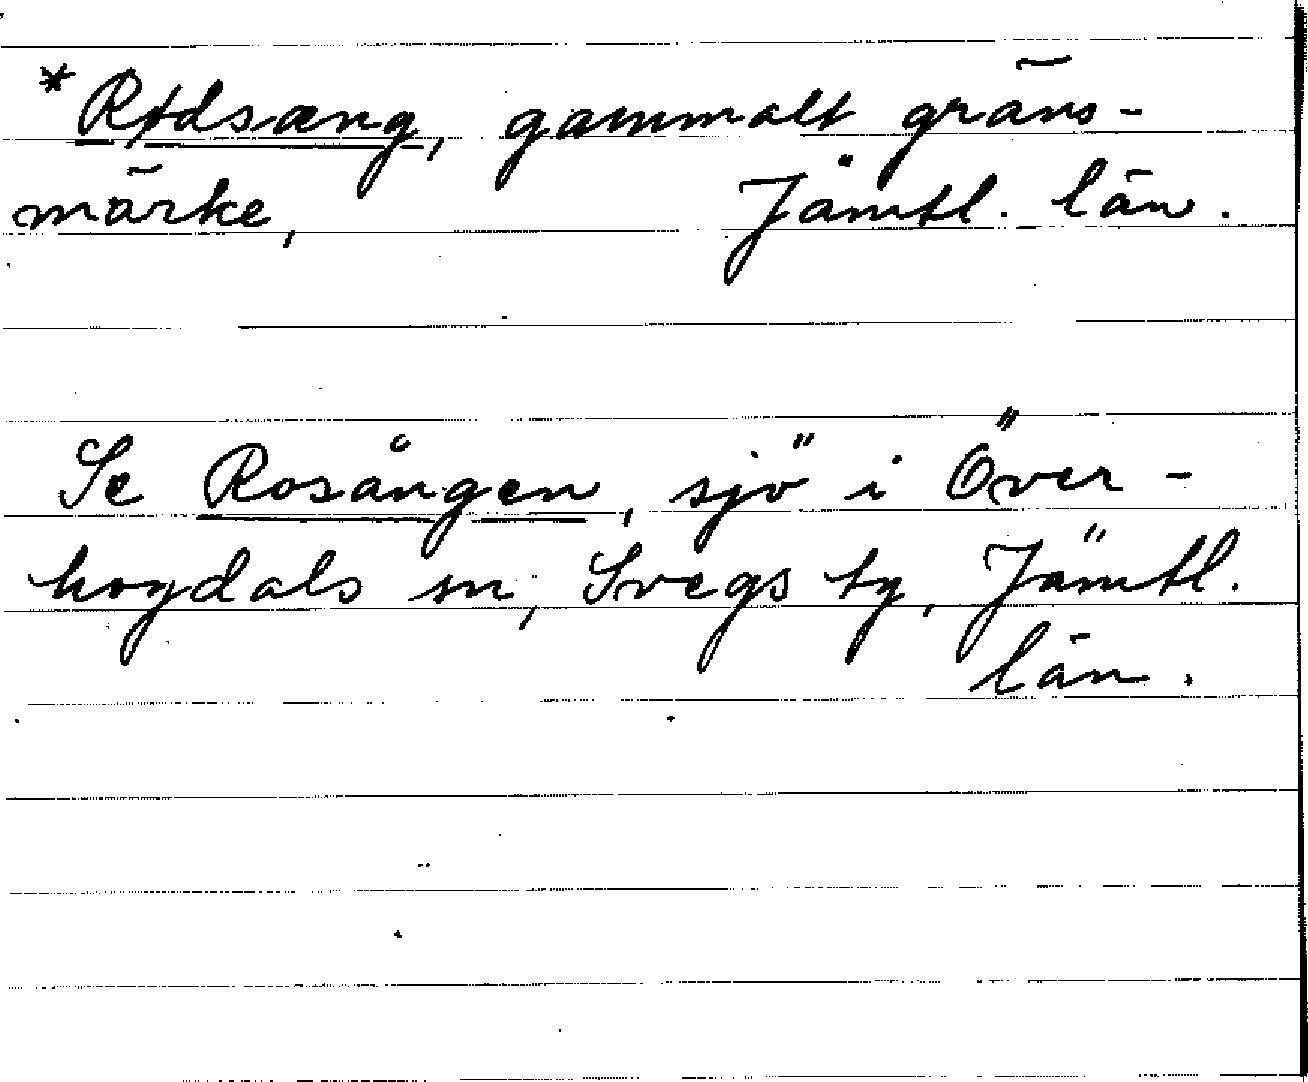 *Rødsæng, gammalt gräns-
märke, Jämtl. län.
Se Rosången, sjö i Över-
hogdals sn, Svegs tg, Jämtl.
län.